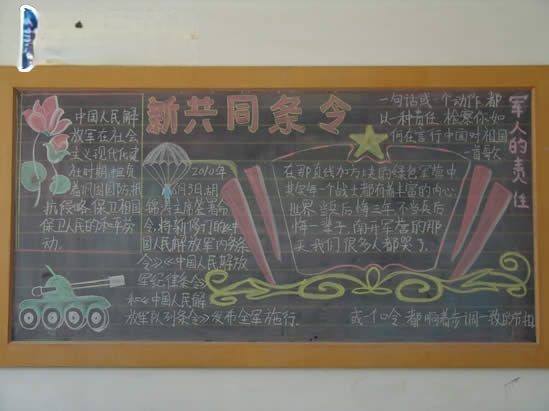 新共同条令
中国人民解
放军在社会
主义现代化建
设时期担负
着巩固国防抵
抗侵略保卫祖国
保卫人民的和平劳
动。
2010年
6月3日,胡
锦涛主席签署命
令,将新修订的《中
国人民解放军内务条
令》《中国人民解放
军纪律条令》
和《中国人民解
放军队列条令》发布全军施行.
在那直线加方块的绿色军营中
其实每个战士都有着丰富的内心
世界,当兵后悔三年,不当兵后
悔一辈子,离开军营的那
天我们很多人都哭了
军人的责任
一句话或一个动作,都
以一种责任
何在言行中国对祖国
首歌
或一个口令,都
着步调一致的